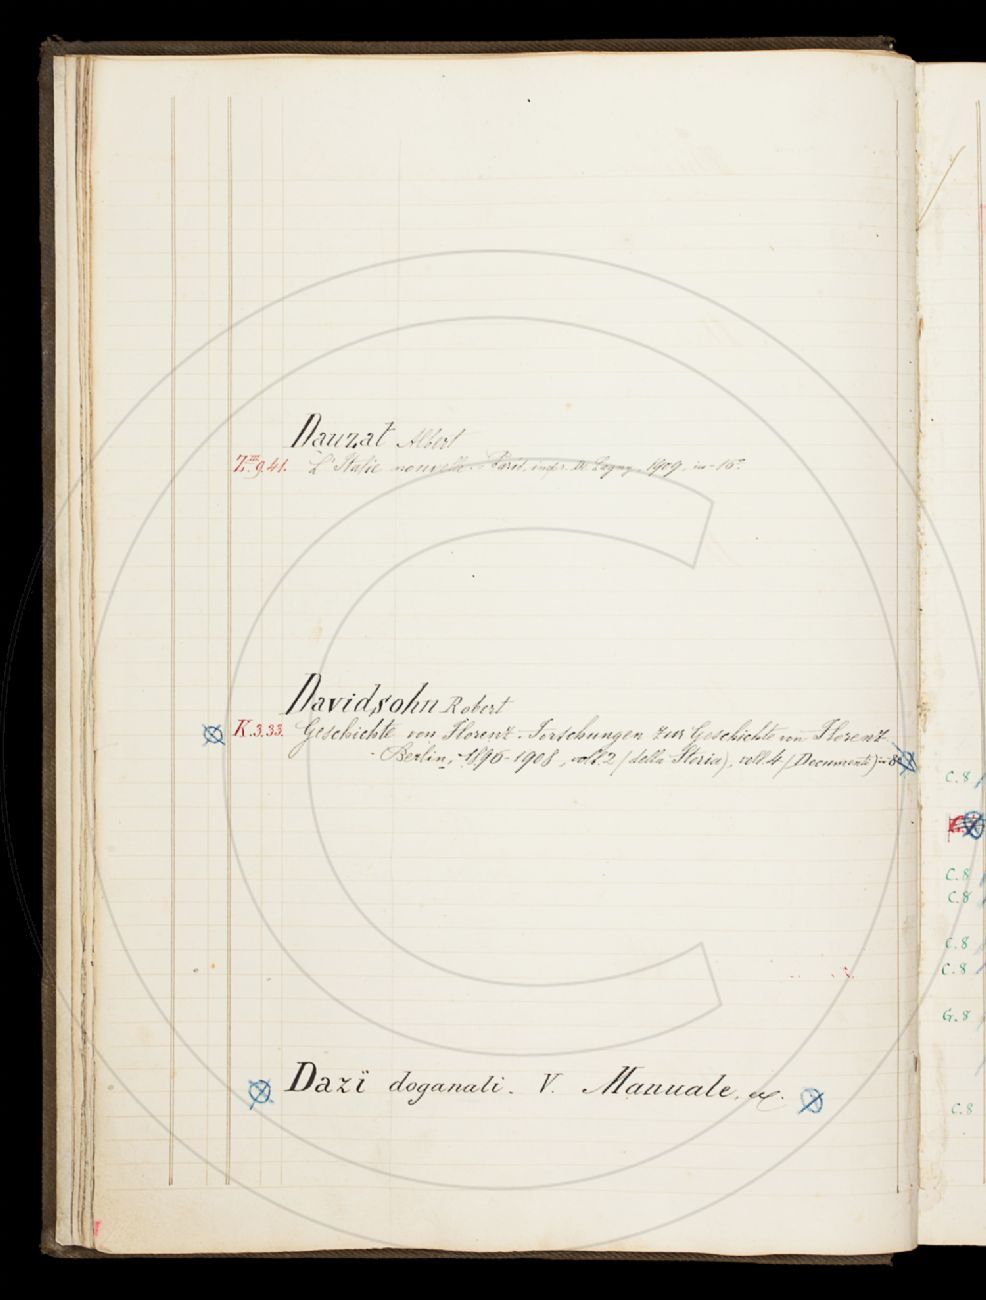 Dauzat Albert
Z.III.9.41. L'Italie nouvelle. - Paris, impr. de Lagny, 1909, in-16º.
Davidsohn Robert
K.3.33. Geschichte von Florenz - Forschungen zur Geschichte von Florenz
- Berlin, 1896-1908, voll. 2 (della Storia), voll. 4 (Documenti) in-8º
Dazî doganali. V. Manuale, ec.
C.8
C.8
C.8
C.8
C.8
G.8
C.8